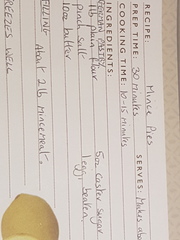 RECIPE: Mince Pies
PREP TIME: 30 minutes SERVES: Makes
COOKING TIME: 10-15 minutes
INGREDIENTS:
1lb Plain Flour 5oz Caster Sugar
Pinch Salt 1 egg beaten
10oz butter
FILLING About 2lb mincemeat.
FREEZES WELL